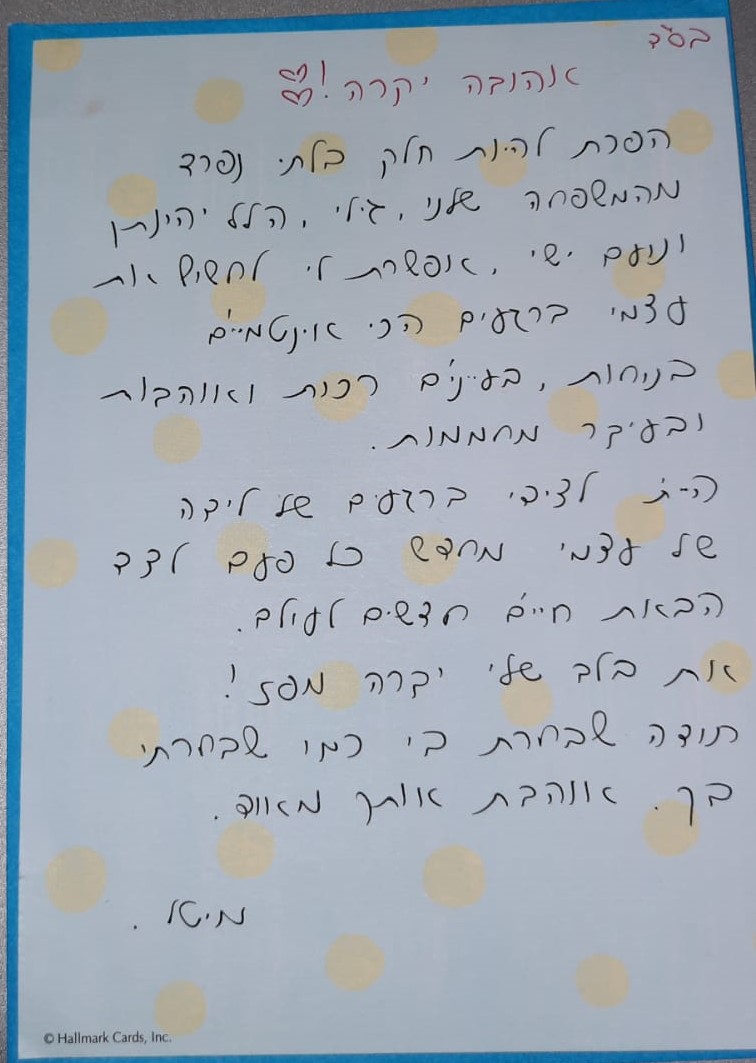 בס"ד
אהובה יקרה!
הפכת להיות חלק בלתי נפרד
מהמשפחה שלנו, גילי, הלל יהונתן
ונועם ישי, אפשרת לי לחשוף את
עצמי ברגעים הכי אינטמיים
בנוחות, בעיניים רכות ואוהבות
ובעיקר מחממות.
היית לצידי ברגעים של לידה
של עצמי מחדש כל פעם לצד
הבאת חיים חדשים לעולם.
את בלב שלי יקרה מפז!
תודה שבחרת בי כמו שבחרתי
בך. אוהבת אותך מאוד.
מיטל.
© Hallmark Cards, Inc.